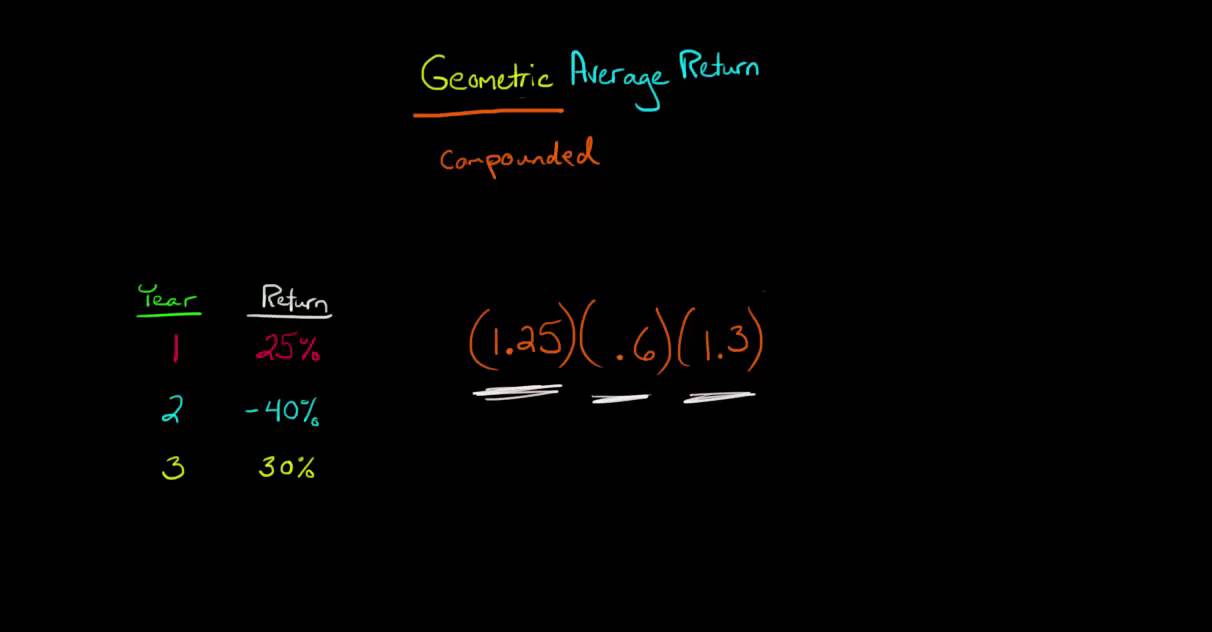 Geometric Average Return
compounded
Year Return
1 25%
2 -40%
3 30%
(1.25)(.6)(1.3)